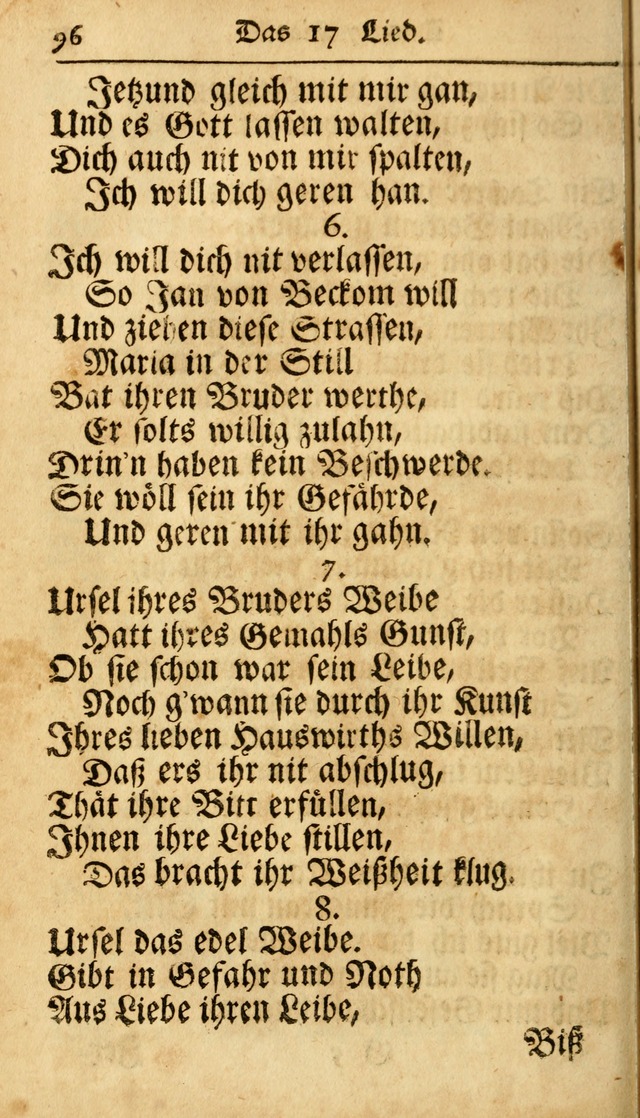 96 Das 17 Lied.
Jetzund gleich mit mir gan,
Und es Gott lassen walten,
Dich auch nit von mir spalten,
Ich will dich geren han.
6.
Ich will dich nit verlassen,
So Jan von Beckom will
Und ziehen diese Strassen,
Maria in der Still
Bat ihren Bruder werthe,
Er solts willig zulahn,
Drin'n haben kein Beschwerde.
Sie wöll sein ihr Gefährde,
Und geren mit ihr gahn.
7.
Ursel ihres Bruders Weibe
Hatt ihres Gemahls Gunst,
Ob sie schon war sein Leibe,
Noch g'wann sie durch ihr Kunst
Ihres lieben Hauswirths Willen,
Daß ers ihr nit abschlug,
Thät ihre Bitt erfüllen,
Ihnen ihre Liebe stillen,
Das bracht ihr Weißheit klug.
8.
Ursel das edel Weibe.
Gibt in Gefahr und Noth
Aus Liebe ihren Leibe,
Biß